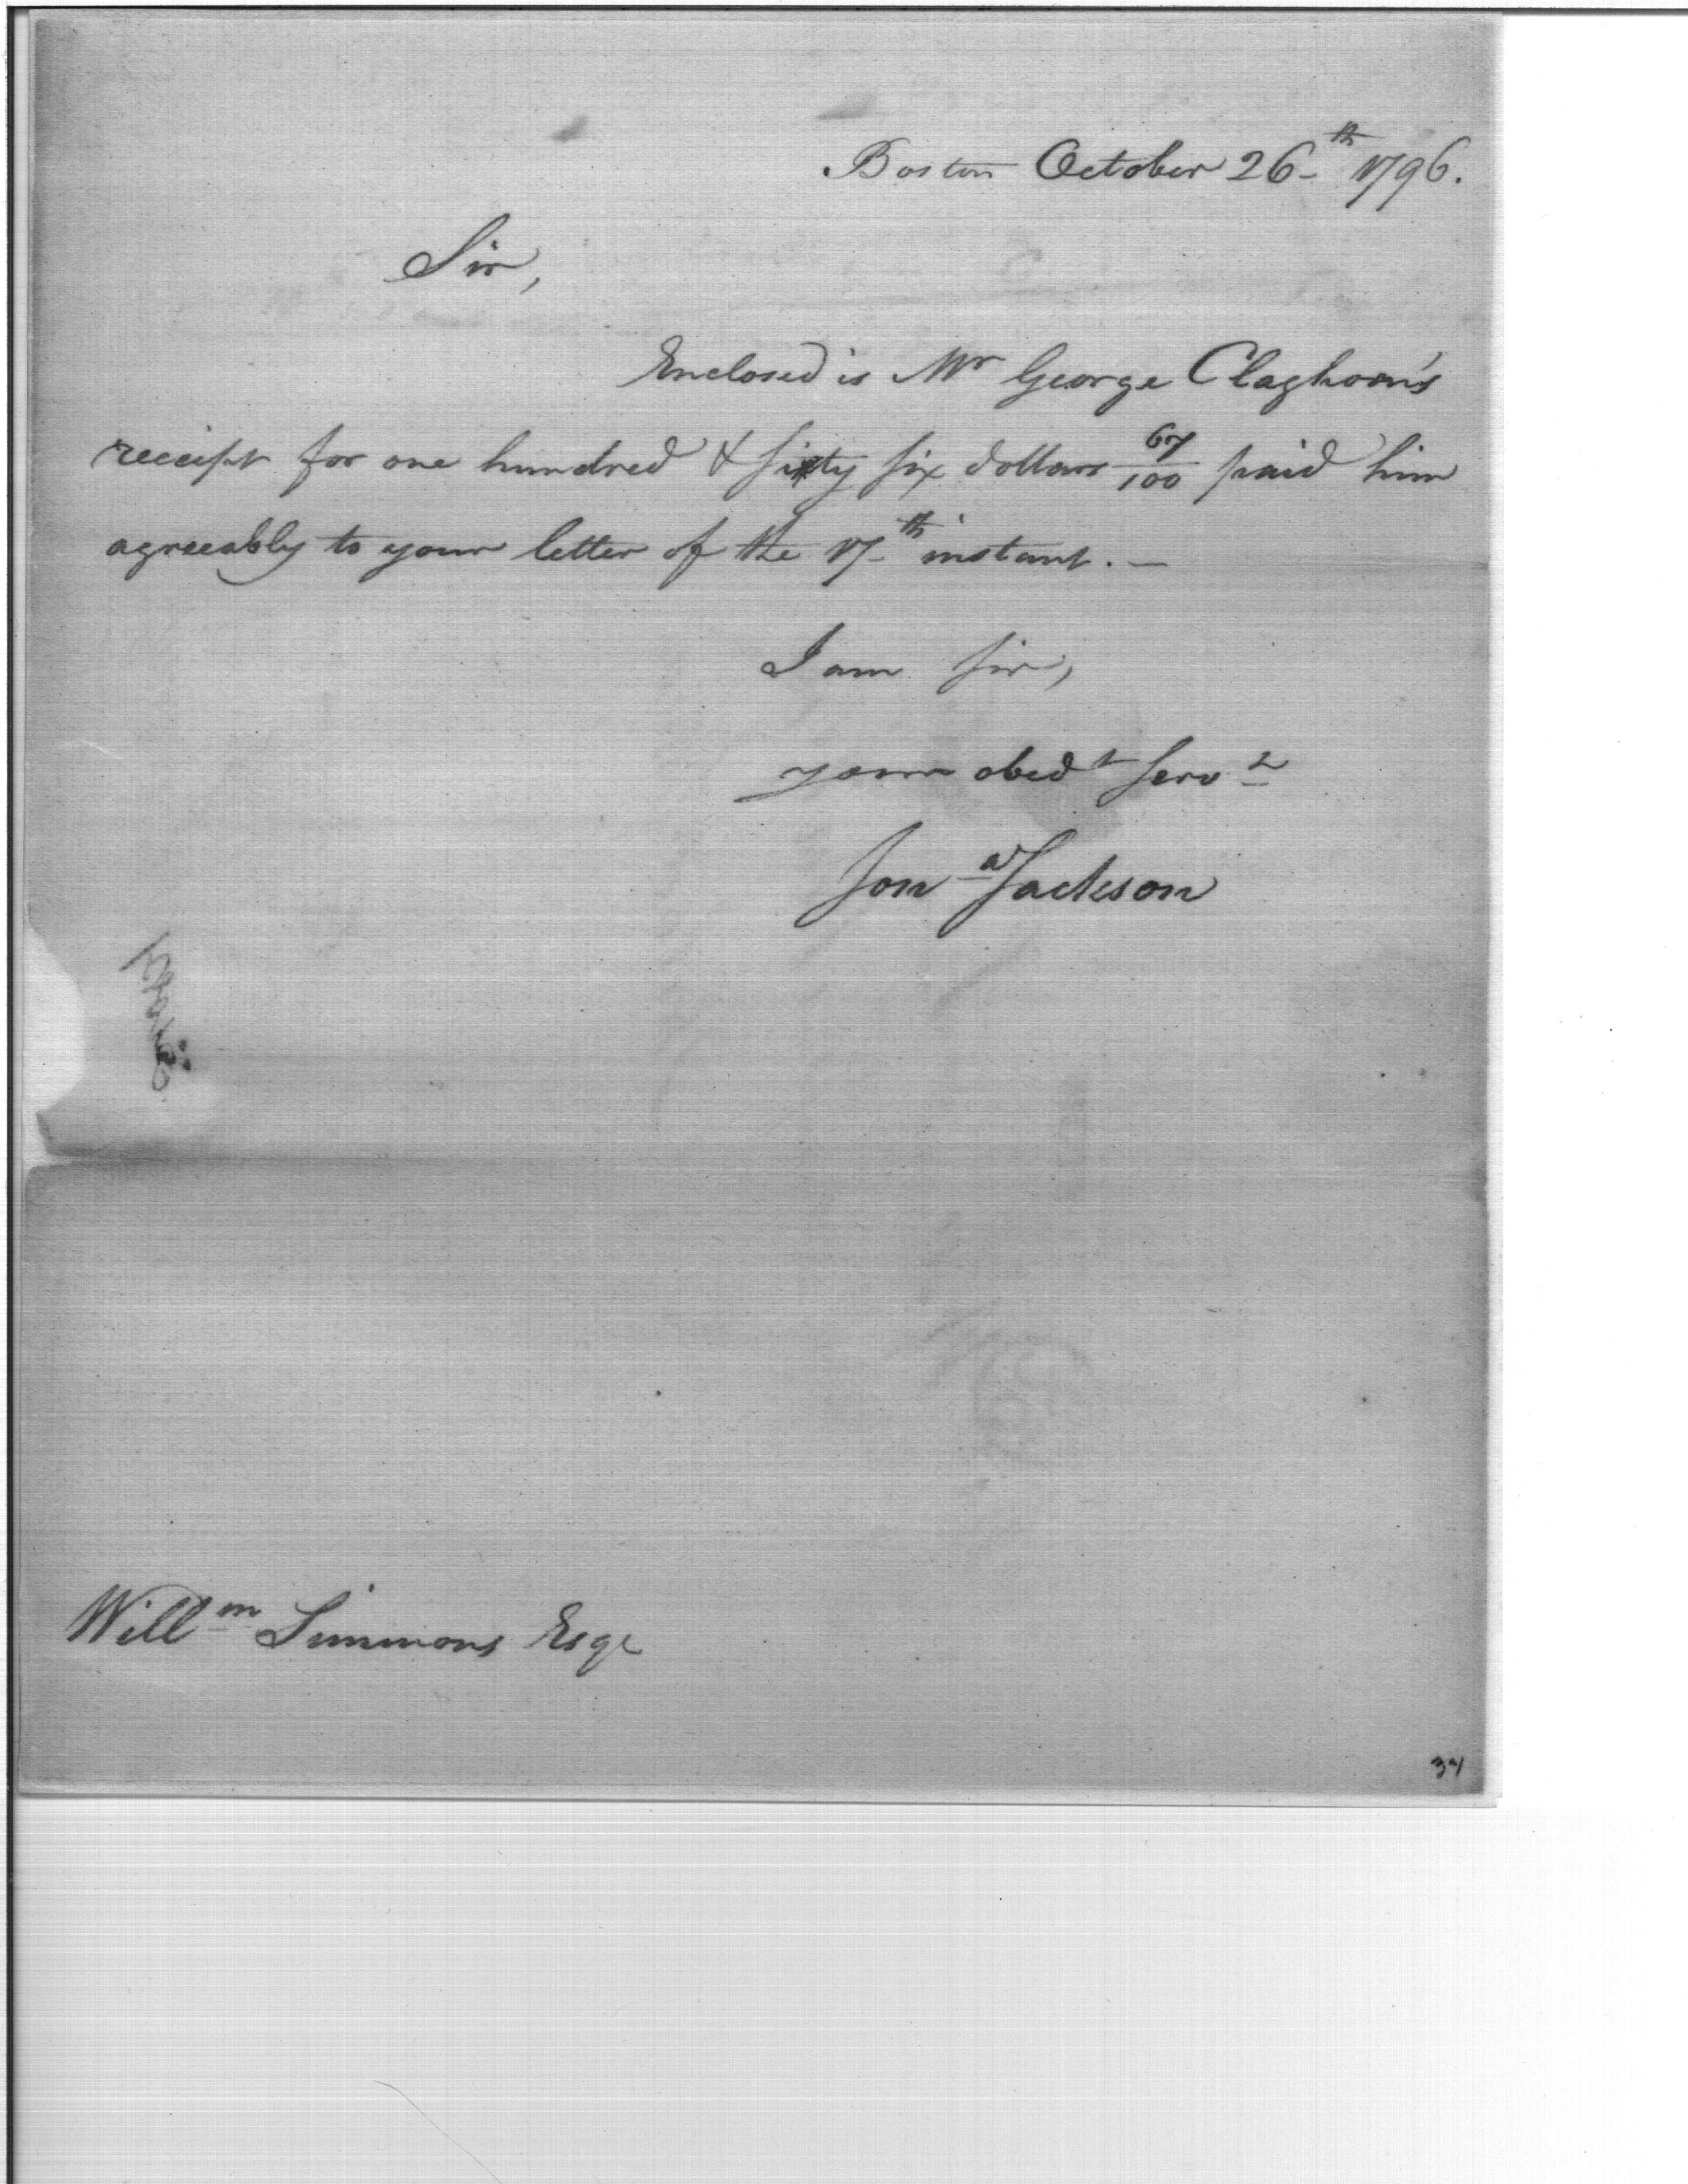 Boston October 26th 1796.
Sir,
Enclosed is Mr George Claghorn's
receipt for one hundred & sixty six dollars 67/100 paid him
agreeably to your letter of the 17th instant. —
I am Sir,
your obedt Servt
Jona Jackson
Willm Simmons Esqr
34